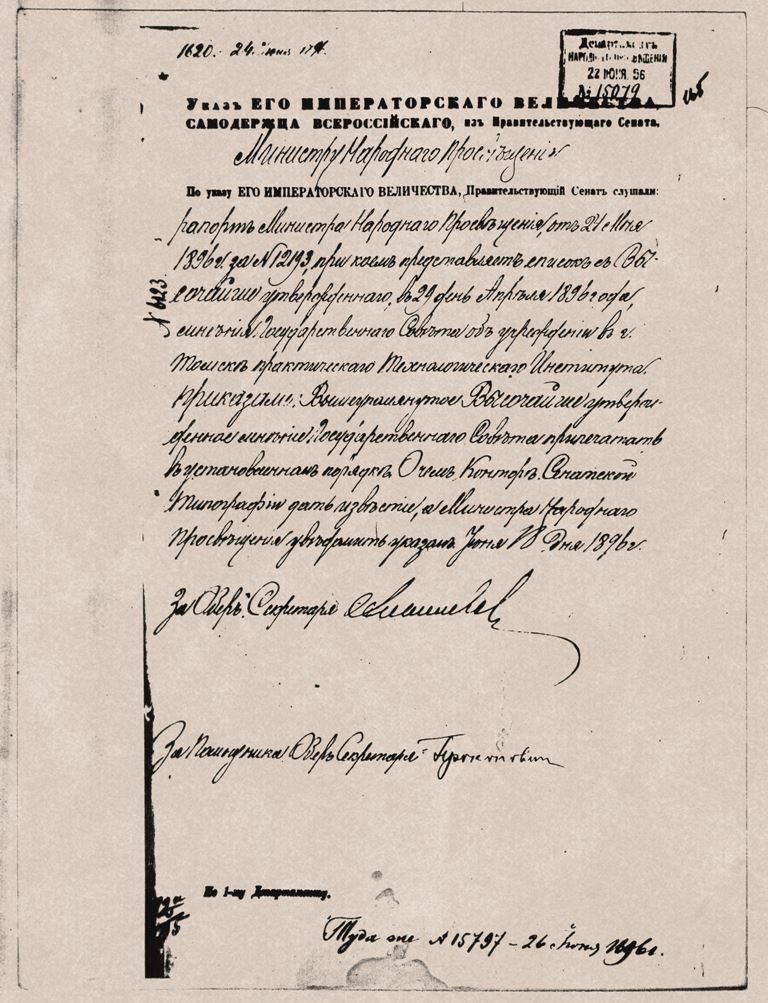 1620. 24
Департаментъ
НАРОДН. ПРОСВѢЩЕНІЯ
22 ІЮНЯ. 96
№ 15079
Указъ ЕГО ИМПЕРАТОРСКАГО ВЕЛИЧЕСТВА
САМОДЕРЖЦА ВСЕРОССІЙСКАГО, изъ Правительствующаго Сената.
Министру Народнаго Просвѣщенія
По указу ЕГО ИМПЕРАТОРСКАГО ВЕЛИЧЕСТВА, Правительствующій Сенатъ слушали:
рапортъ Министра Народнаго Просвѣщенія, отъ 21 Мая
1896 г. за № 12193, при коемъ представляетъ списокъ съ Высо-
чайше утвержденнаго, въ 29 день Апрѣля 1896 года,
мнѣнія Государственнаго Совѣта объ учрежденіи въ г.
Томскѣ практическаго Технологическаго Института.
Приказали: Вышеупомянутое Высочайше утверж-
денное мнѣніе Государственнаго Совѣта припечатать
въ установленномъ порядкѣ. О чемъ, Конторѣ Сенатской
Типографіи дать извѣстіе, а Министра Народнаго
Просвѣщенія увѣдомить указомъ. Іюня 18 дня 1896 г.
№ 6123.
За Оберъ-Секретаря
За Помощника Оберъ Секретаря
По 1-му Департаменту.
Туда же № 15797 - 26 Іюня 1896 г.